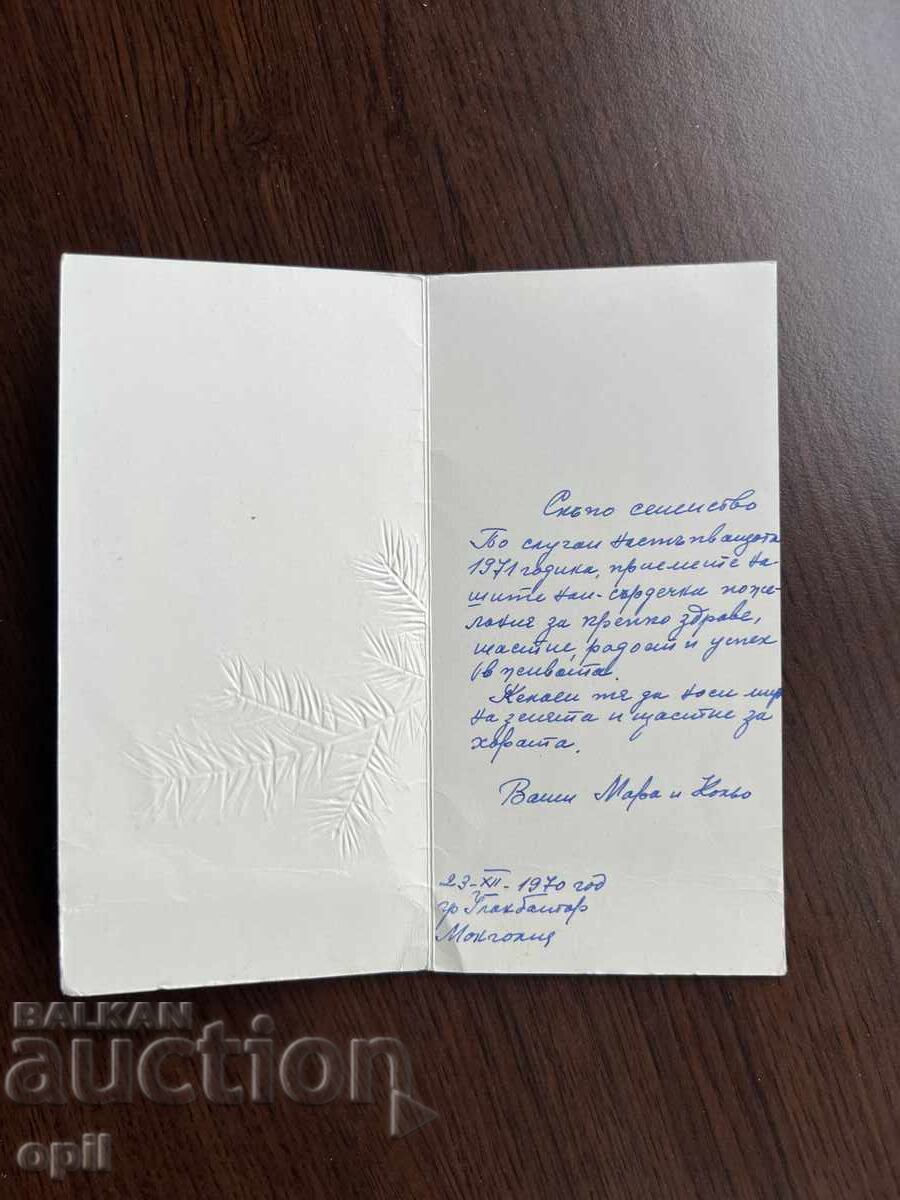 Скъпо семейство
По случай настъпващата
1971 година, приемете на-
шите най-сърдечни поже-
лания за крепко здраве,
щастие, радост и успех
в живота.
да носи мир
на земята и щастие за
хората.
Ваши Мара и Кольо
23-XII-1970 год
гр Уланбатор
Монголия
BALKAN
auction
opil